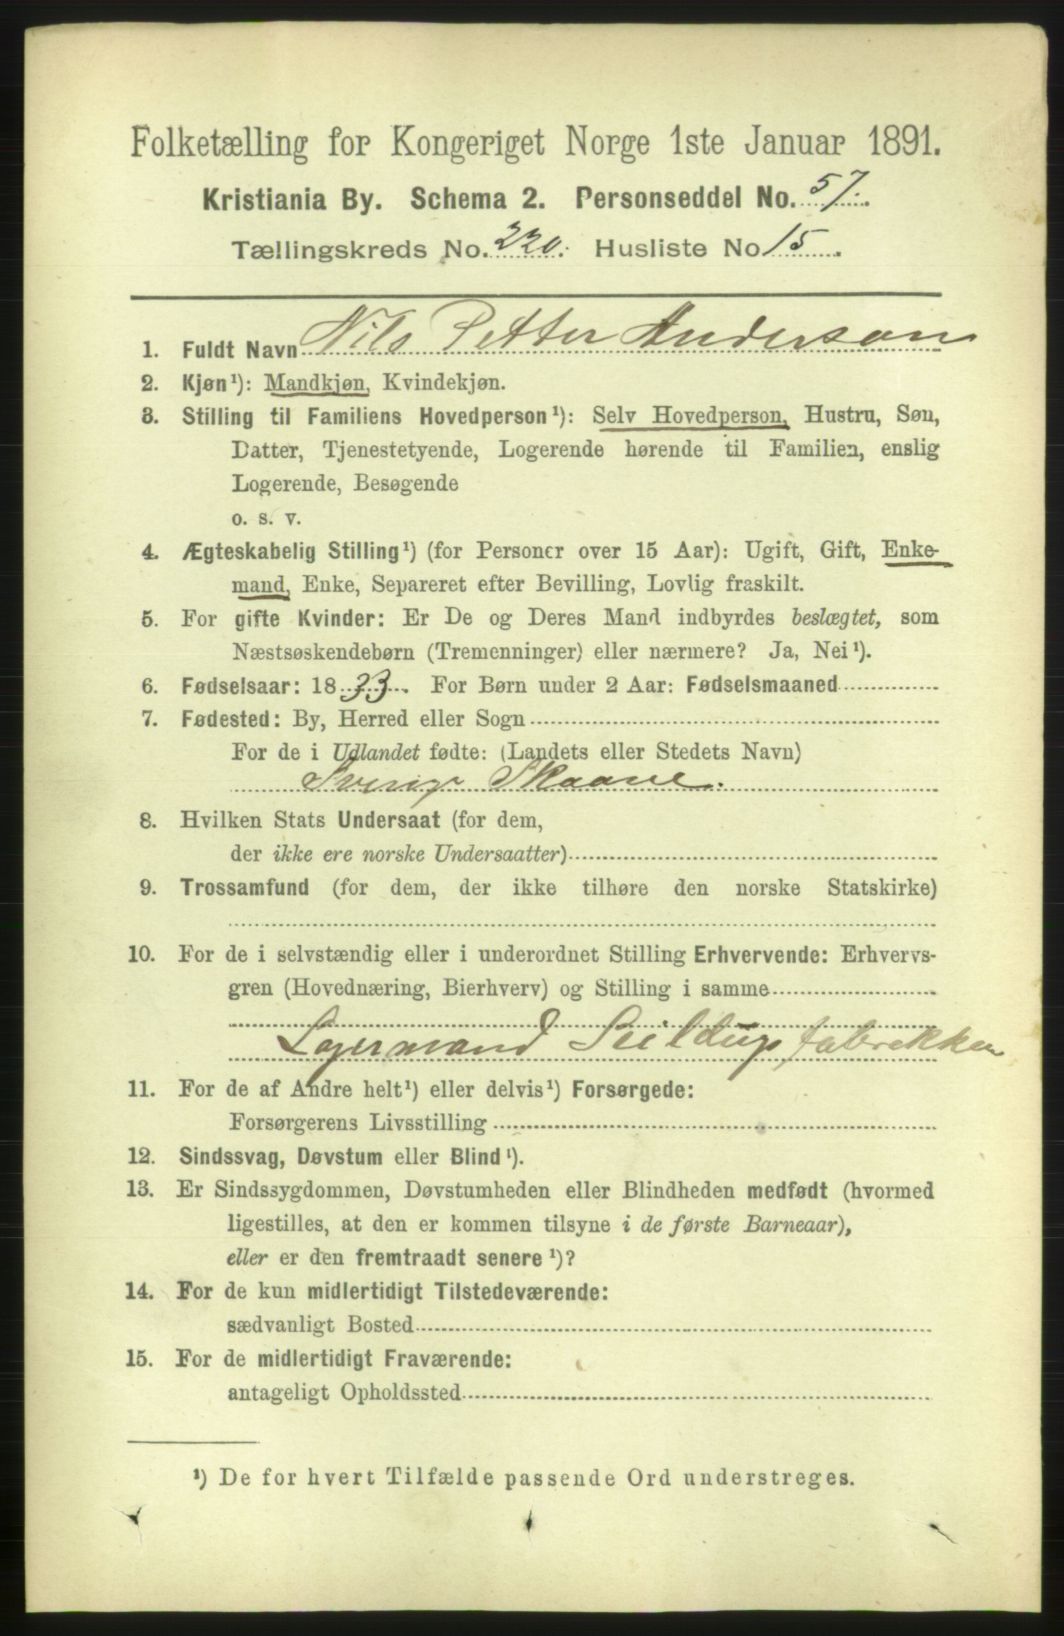 Folketælling for Kongeriget Norge 1ste Januar 1891.
Kristiania By. Schema 2. Personseddel No. 57.
Tællingskreds No. 220. Husliste No 15.
1. Fuldt Navn Nils Petter Anderson
2. Kjøn¹): Mandkjøn, Kvindekjøn.
3. Stilling til Familiens Hovedperson¹): Selv Hovedperson, Hustru, Søn,
Datter, Tjenestetyende, Logerende hørende til Familien, enslig
Logerende, Besøgende
o. s. v.
4. Ægteskabelig Stilling¹) (for Personer over 15 Aar): Ugift, Gift, Enke-
mand, Enke, Separeret efter Bevilling, Lovlig fraskilt.
5. For gifte Kvinder: Er De og Deres Mand indbyrdes beslægtet, som
Næstsøskendebørn (Tremenninger) eller nærmere? Ja, Nei¹).
6. Fødselsaar: 1833. For Børn under 2 Aar: Fødselsmaaned
7. Fødested: By, Herred eller Sogn
For de i Udlandet fødte: (Landets eller Stedets Navn)
Sverige Skaane.
8. Hvilken Stats Undersaat (for dem,
der ikke ere norske Undersaatter)
9. Trossamfund (for dem, der ikke tilhøre den norske Statskirke)
10. For de i selvstændig eller i underordnet Stilling Erhvervende: Erhvervs-
gren (Hovednæring, Bierhverv) og Stilling i samme
Lagermand Seildugsfabrikken
11. For de af Andre helt¹) eller delvis¹) Forsørgede:
Forsørgerens Livsstilling
12. Sindssvag, Døvstum eller Blind¹).
13. Er Sindssygdommen, Døvstumheden eller Blindheden medfødt (hvormed
ligestilles, at den er kommen tilsyne i de første Barneaar),
eller er den fremtraadt senere¹)?
14. For de kun midlertidigt Tilstedeværende:
sædvanligt Bosted
15. For de midlertidigt Fraværende:
antageligt Opholdssted
¹) De for hvert Tilfælde passende Ord understreges.